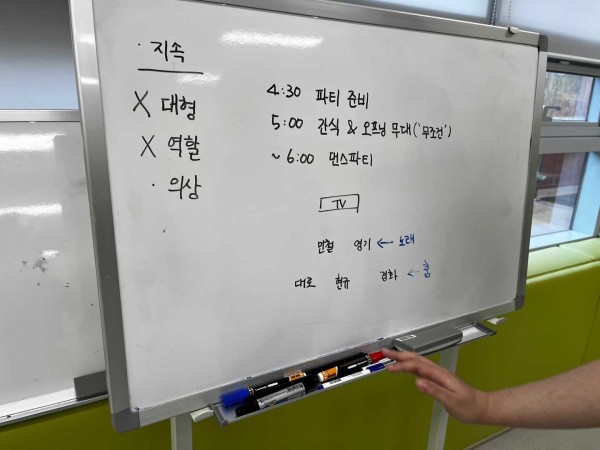 · 지속
X 대형
X 역할
· 의상
4:30 파티 준비
5:00 간식 & 오프닝 무대('무조건')
~ 6:00 댄스파티
TV
민철 영기 ← 노래
대로 현규 경화 ← 춤